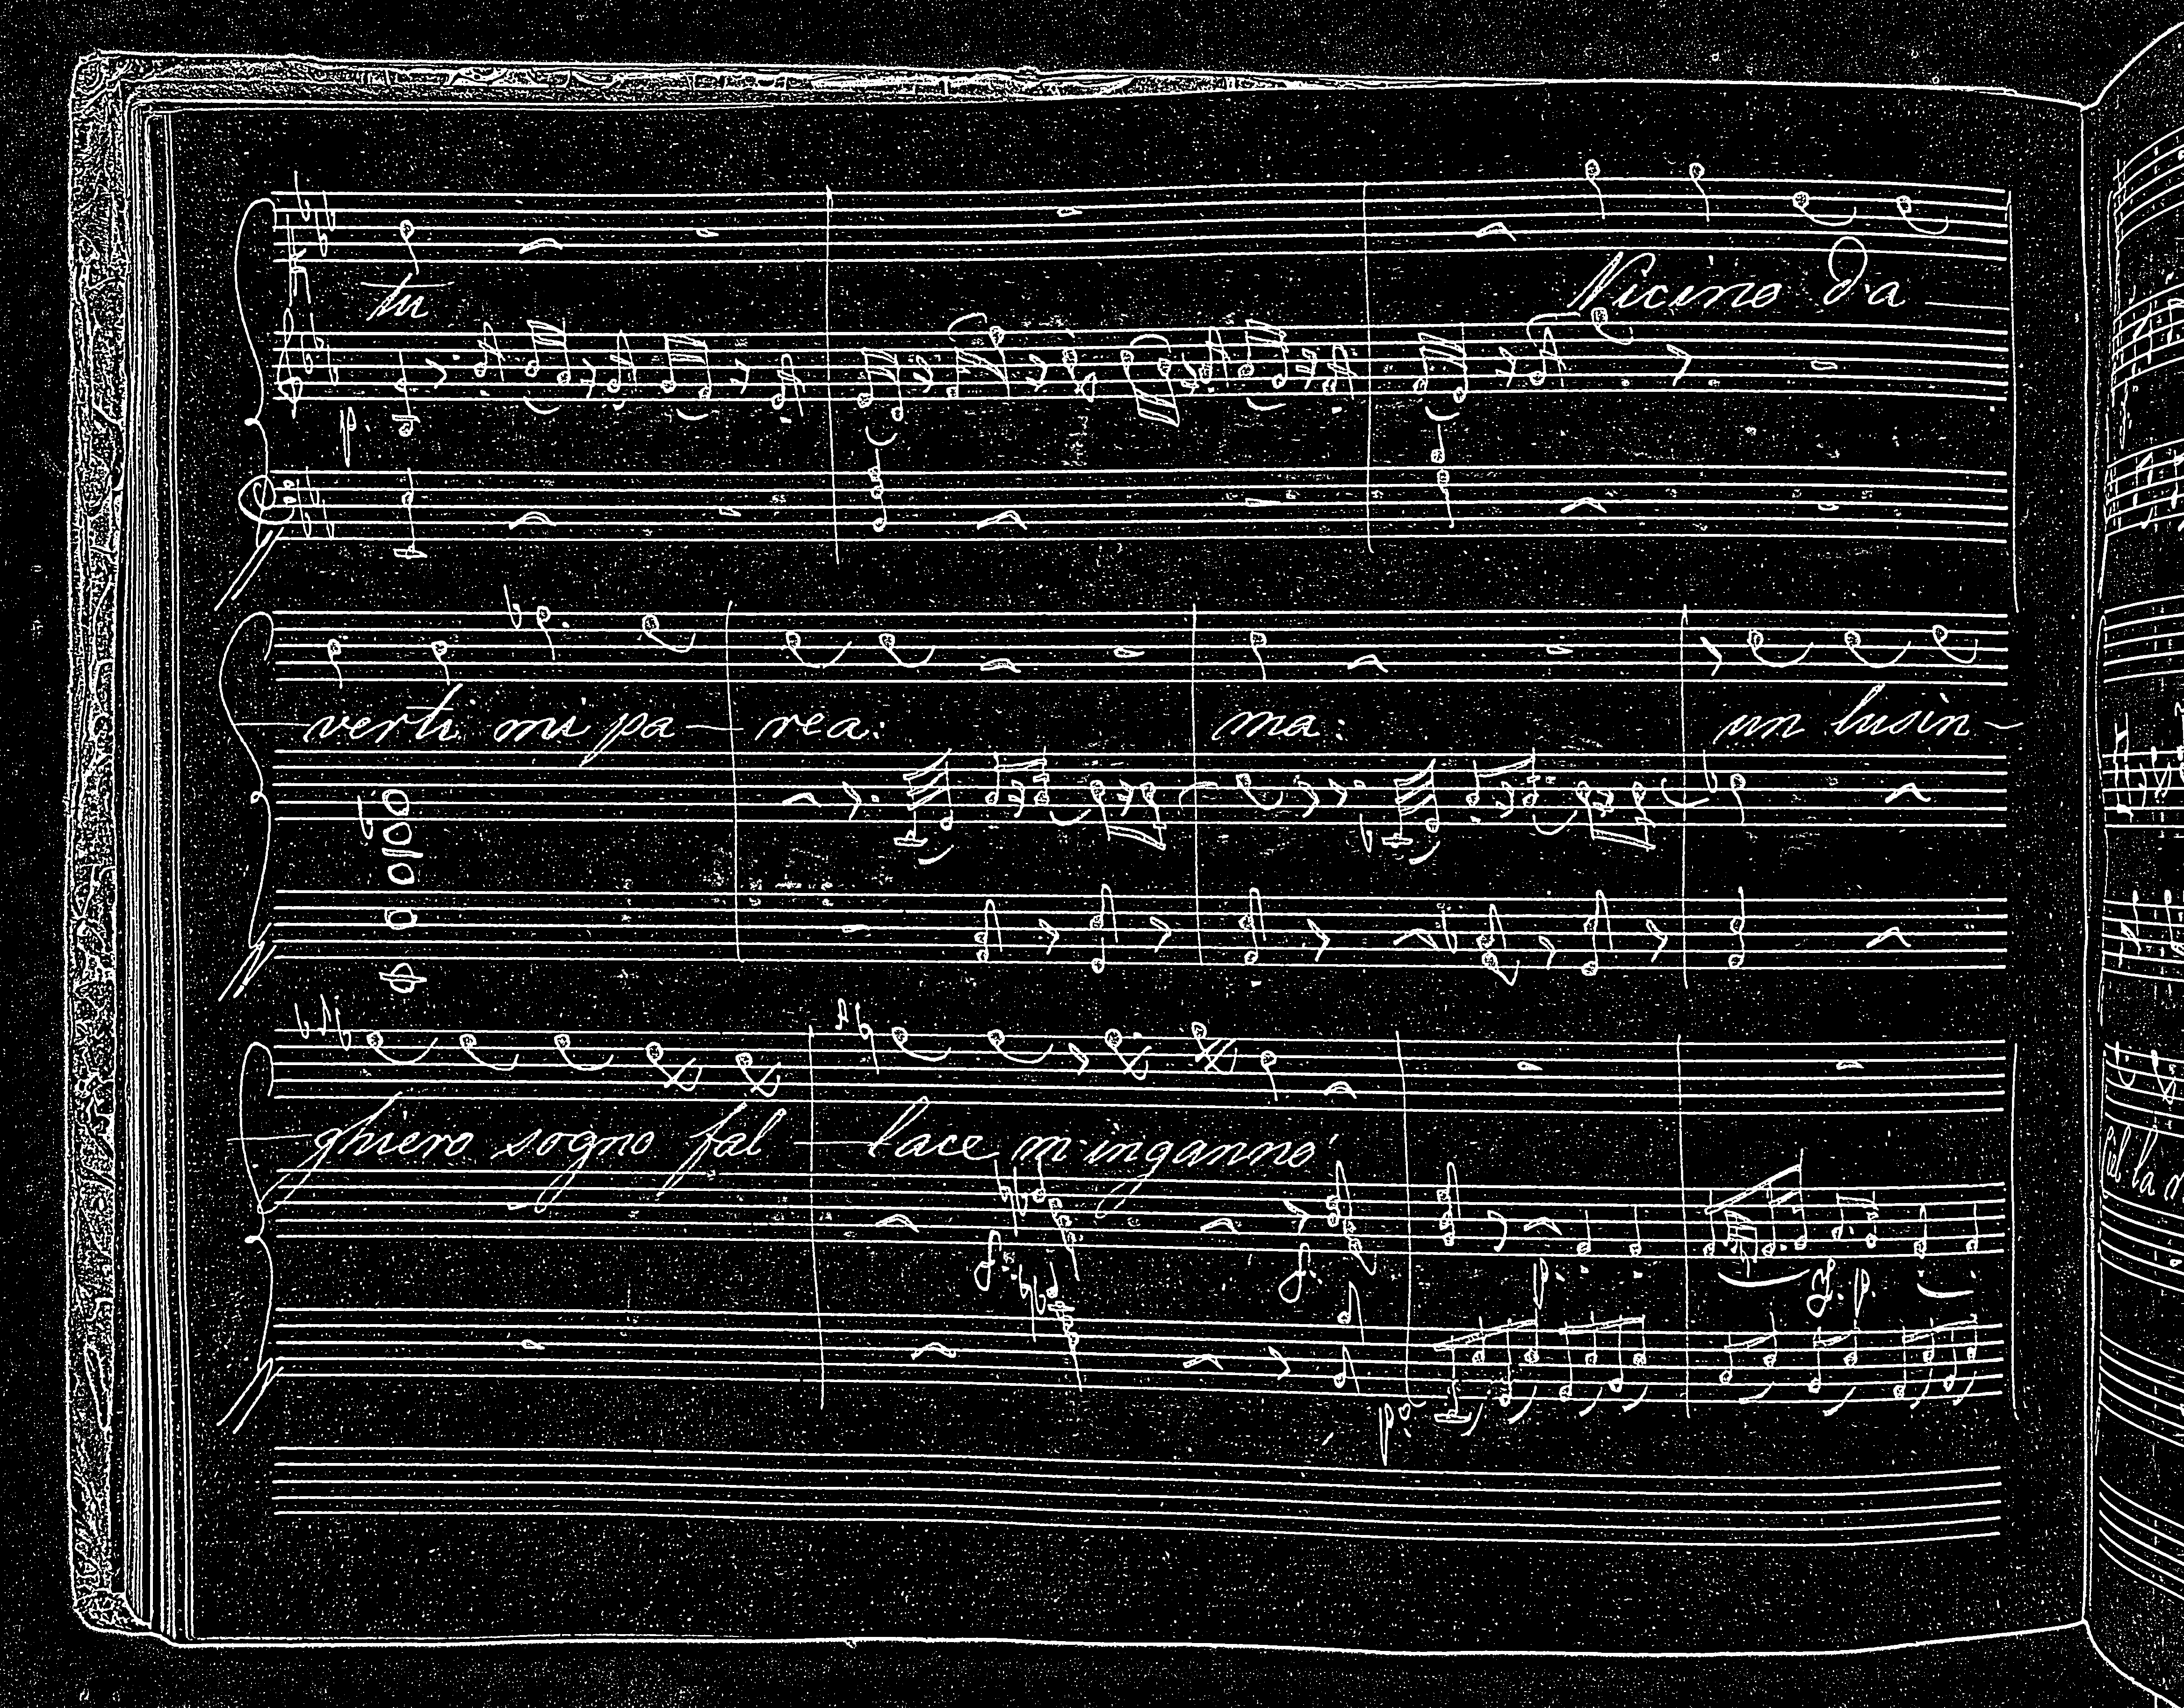 tu
Vicino d'a
p.
verti mi pa - rea:
ma:
un lusin -
ghiero sogno fal - lace m'inganno'
f.
f.
p.
f. p.
p.